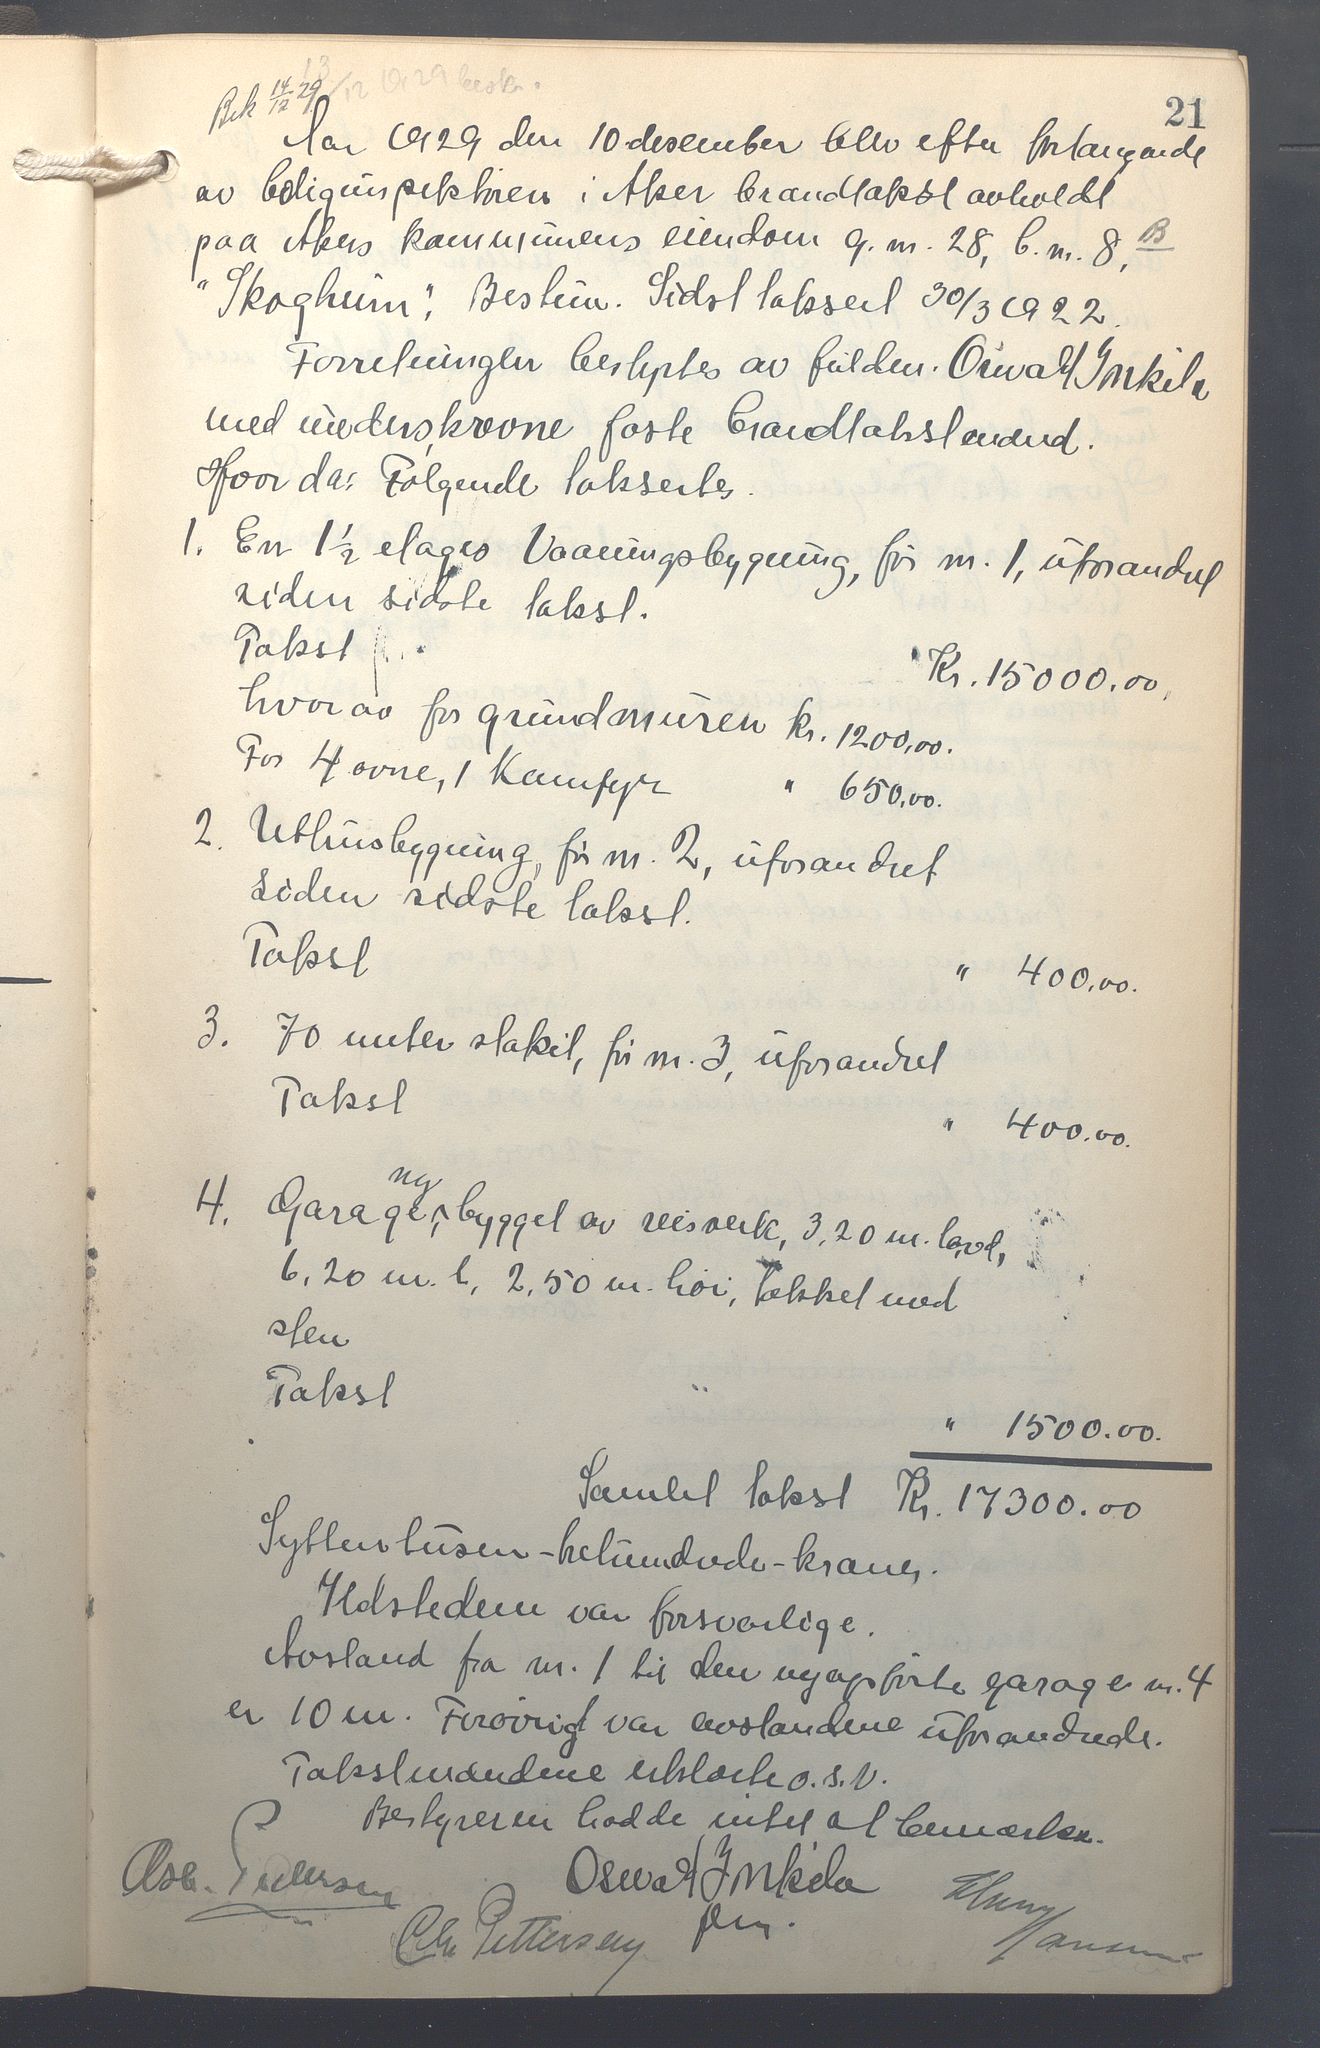 Bek 14/12 29
21
Aar 1929 den 10 desember blev efter forlangende
av boliginspektören i Aker brandtakst avholdt
paa Akers kommunens eiendom g. nr. 28, b. nr. 8, B
"Skogheim", Bestun. Sidst taksert 30/3 1922.
Forretningen bestyrtes av fuldm. Oswald Inkila
med underskrevne faste brandtakstmænd.
Hvor da: Følgende taksertes.
1. En 1½ etages Vaaningsbygning, för nr. 1, uforandret
siden sidste takst.
Takst Kr. 15000.00,
hvorav for grundmuren kr. 1200,00.
For 4 ovne, 1 Kamfyr " 650,00.
2. Uthusbygning, för nr. 2, uforandret
siden sidste takst.
Takst " 400,00.
3. 70 meter stakit, för nr. 3, uforandret
Takst " 400.00.
4. Garage, ny, bygget av reisverk, 3,20 m. bred,
6,20 m. l, 2,50 m. höi, tekket med
sten
Takst " 1500.00.
Samlet takst Kr. 17300.00
Syttentusen-trehundrede-kroner.
Ildstedene var forsvarlige.
Avstand fra nr. 1 til den nyopförte garage nr. 4
er 10 m. Forövrigt var avstandene uforandrede.
Takstmændene erklærte o.s.v.
Bestyreren hadde intet at bemærke.
Osc. Pedersen
Oswald Inkila
fm.
Chr Pettersen
Hansen